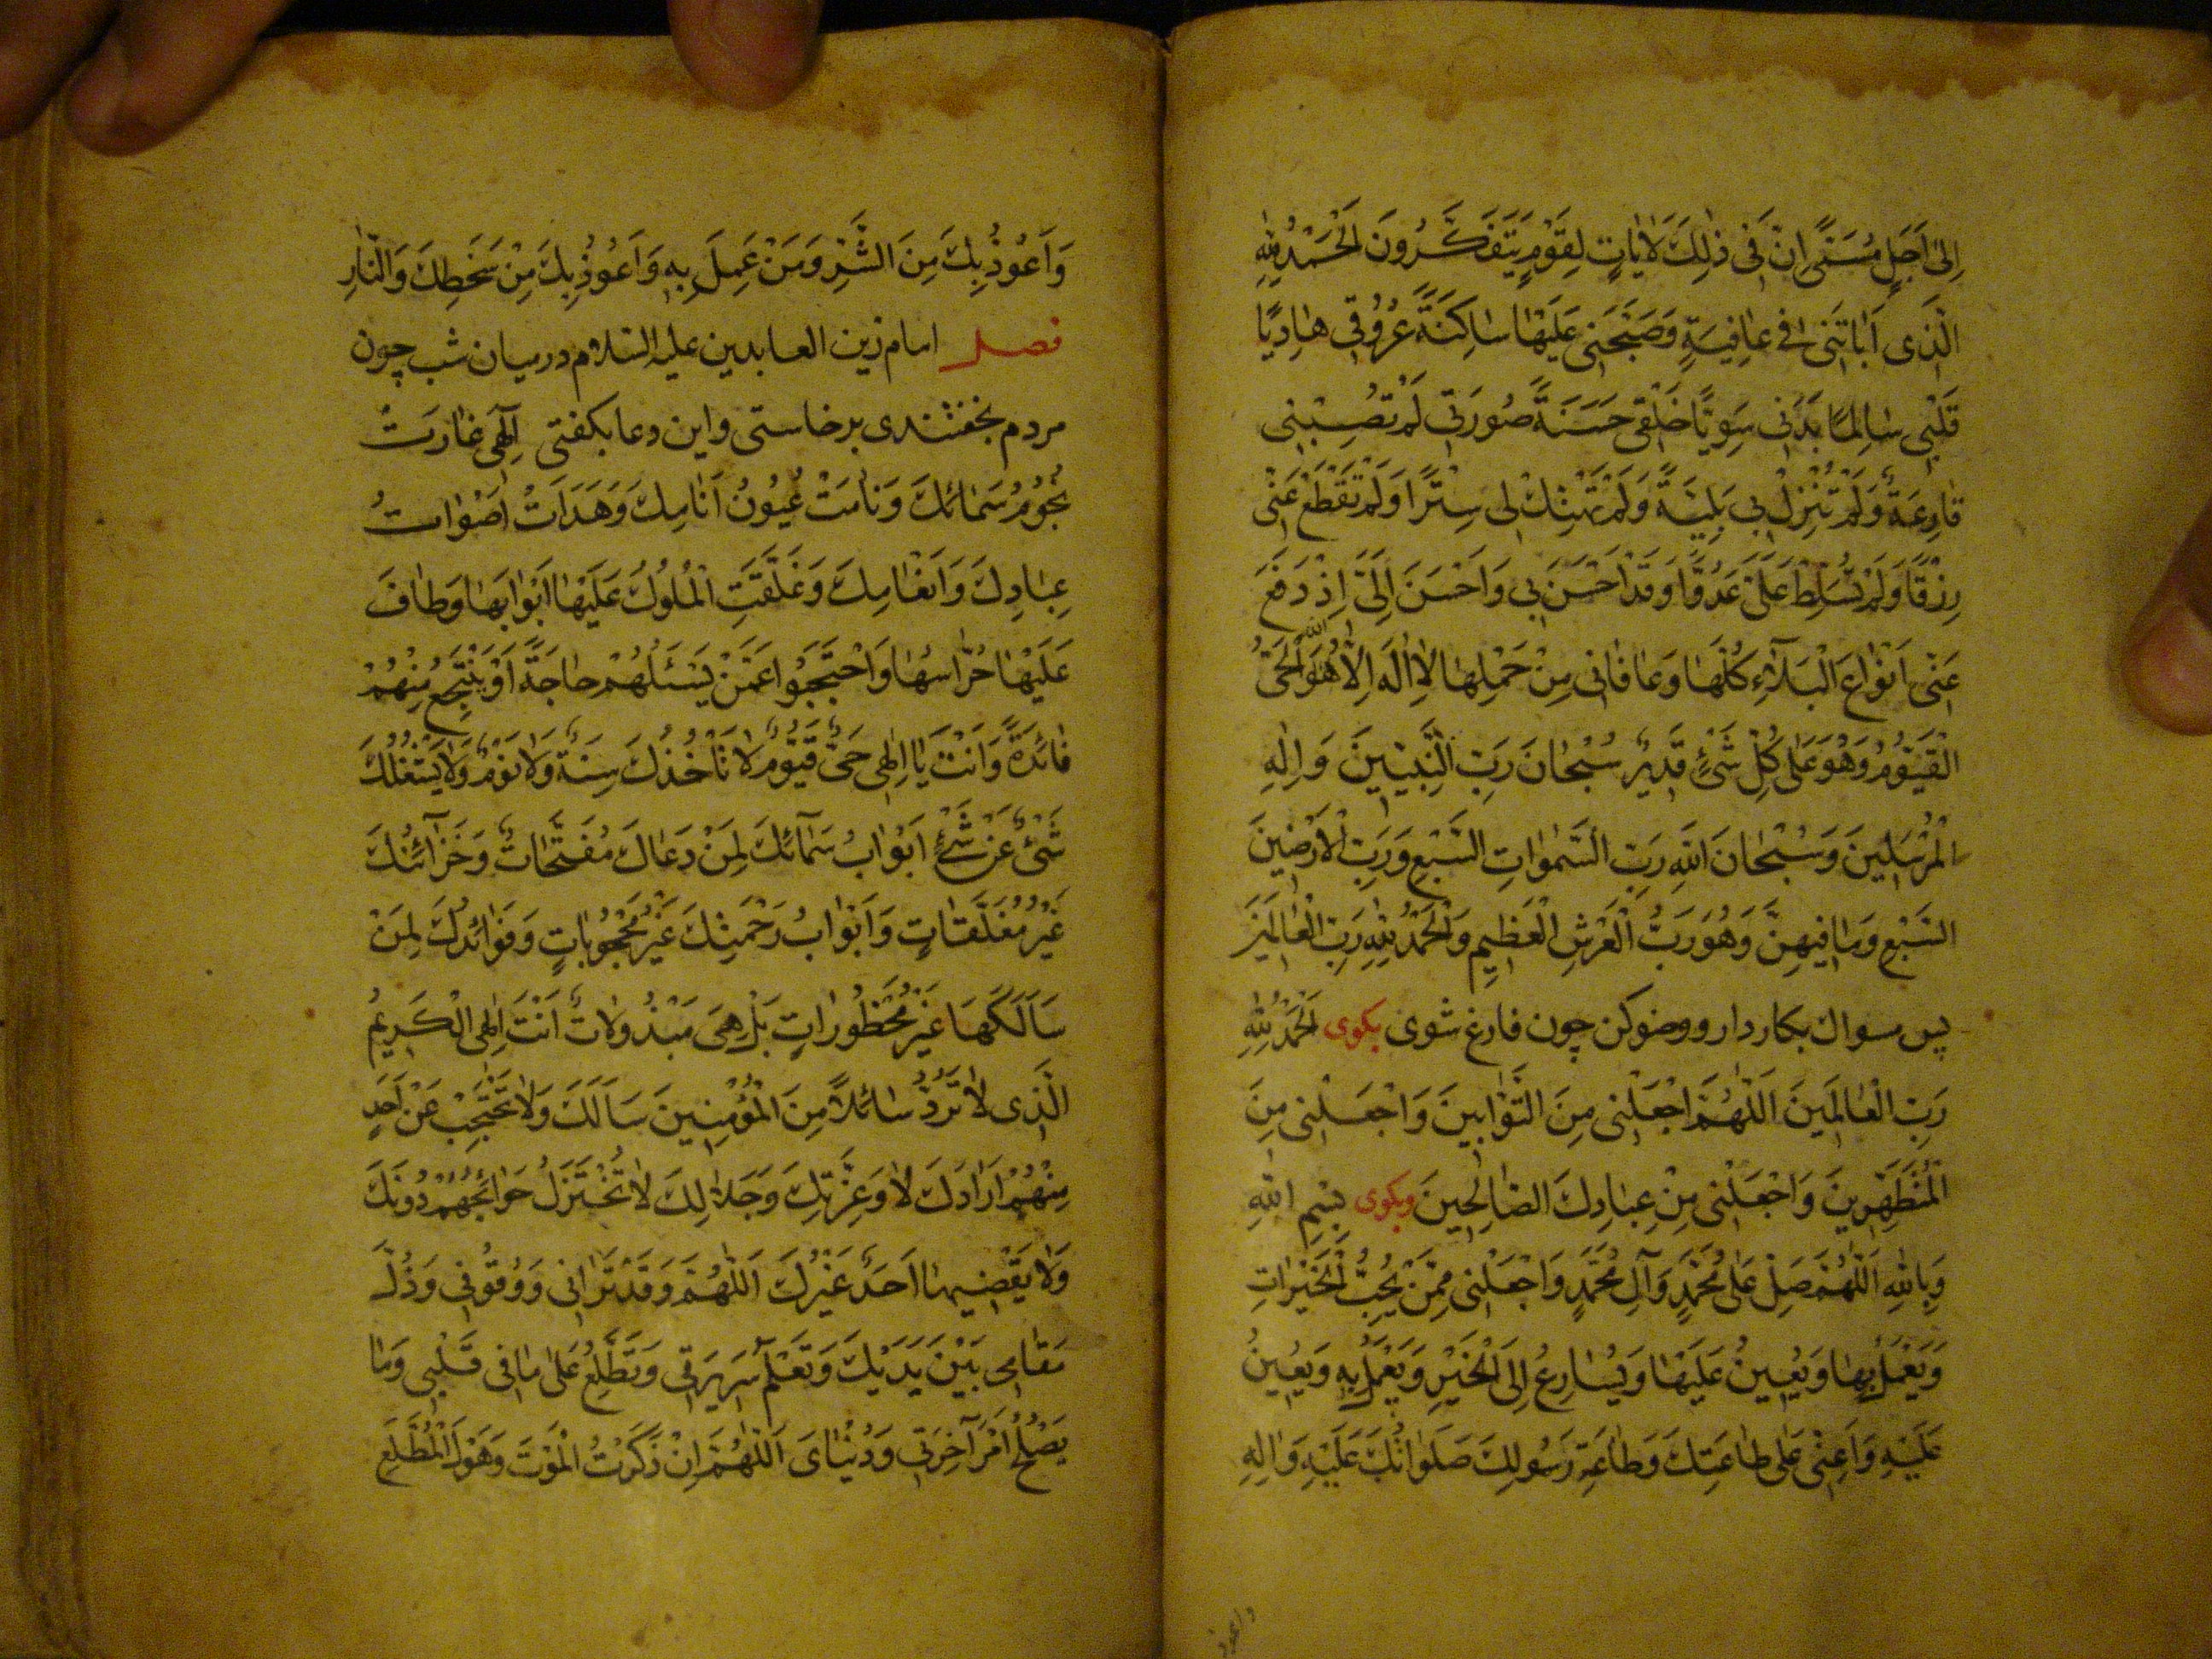 اِلىٰ اَجَلٍ مُسَمًّى اِنَّ فى ذٰلِكَ لَاٰيَاتٍ لِقَوْمٍ يَتَفَكَّرُونَ اَلْحَمْدُ لِلّٰهِ
الَّذى اَبَاتَنى فى عَافِيَةٍ وَصَبَّحَنى عَلَيْهَا سَاكِنَةً عُرُوقى هَادِيًا
قَلْبى سَالِمًا بَدَنى سَوِيًّا خَلْقى حَسَنَةً صُورَتى لَمْ تُصِبْنى
قَارِعَةٌ وَلَمْ تَنْزِلْ بى بَلِيَّةٌ وَلَمْ تَهْتِكْ لى سِتْرًا وَلَمْ تَقْطَعْ عَنّى
رِزْقًا وَلَمْ تُسَلِّطْ عَلَىَّ عَدُوًّا وَقَدْ اَحْسَنَ بى وَاَحْسَنَ اِلَىَّ اِذْ دَفَعَ
عَنّى اَنْوَاعَ الْبَلَآءِ كُلَّهَا وَعَافَانى مِنْ حَمْلِهَا لَا اِلٰهَ اِلَّا اللّٰهُ هُوَ الْحَىُّ
الْقَيُّومُ وَهُوَ عَلىٰ كُلِّ شَىْءٍ قَديرٌ سُبْحَانَ رَبِّ النَّبِيّينَ وَاِلٰهِ
الْمُرْسَلينَ وَسُبْحَانَ اللّٰهِ رَبِّ السَّمٰوَاتِ السَّبْعِ وَرَبِّ الْاَرَضينَ
السَّبْعِ وَمَا فيهِنَّ وَهُوَ رَبُّ الْعَرْشِ الْعَظيمِ وَالْحَمْدُ لِلّٰهِ رَبِّ الْعَالَمينَ
پس مسواك بكار دار و وضو كن چون فارغ شوى بكوى اَلْحَمْدُ لِلّٰهِ
رَبِّ الْعَالَمينَ اَللّٰهُمَّ اجْعَلْنى مِنَ التَّوَّابينَ وَاجْعَلْنى مِنَ
الْمُتَطَهِّرينَ وَاجْعَلْنى مِنْ عِبَادِكَ الصَّالِحينَ وبكوى بِسْمِ اللّٰهِ
وَبِاللّٰهِ اَللّٰهُمَّ صَلِّ عَلىٰ مُحَمَّدٍ وَآلِ مُحَمَّدٍ وَاجْعَلْنى مِمَّنْ يُحِبُّ الْخَيْرَاتِ
وَيَعْمَلُ بِهَا وَيُعينُ عَلَيْهَا وَيُسَارِعُ اِلَى الْخَيْرِ وَيَعْمَلُ بِهِ وَيُعينُ
عَلَيْهِ وَاَعِنّى عَلىٰ طَاعَتِكَ وَطَاعَةِ رَسُولِكَ صَلَوَاتُكَ عَلَيْهِ وَاٰلِهِ
واعوذ
وَاَعُوذُ بِكَ مِنَ الشَّرِّ وَمَنْ عَمِلَ بِهِ وَاَعُوذُ بِكَ مِنْ سَخَطِكَ وَالنَّارِ
فصل امام زين العابدين عليه السّلام درميان شب چون
مردم بخفتندى برخاستى واين دعا بكفتى اِلٰهى غَارَتْ
نُجُومُ سَمَائِكَ وَنَامَتْ عُيُونُ اَنَامِكَ وَهَدَاَتْ اَصْوَاتُ
عِبَادِكَ وَاَنْعَامِكَ وَغَلَّقَتِ الْمُلُوكُ عَلَيْهَا اَبْوَابَهَا وَطَافَ
عَلَيْهَا حُرَّاسُهَا وَاحْتَجَبُوا عَمَّنْ يَسْئَلُهُمْ حَاجَةً اَوْ يَنْتَجِعُ مِنْهُمْ
فَائِدَةً وَاَنْتَ يَا اِلٰهى حَىٌّ قَيُّومٌ لَا تَأْخُذُكَ سِنَةٌ وَلَا نَوْمٌ وَلَا يَشْغَلُكَ
شَىْءٌ عَنْ شَىْءٍ اَبْوَابُ سَمَآئِكَ لِمَنْ دَعَاكَ مُفَتَّحَاتٌ وَخَزَآئِنُكَ
غَيْرُ مُغَلَّقَاتٍ وَاَبْوَابُ رَحْمَتِكَ غَيْرُ مَحْجُوبَاتٍ وَفَوَائِدُكَ لِمَنْ
سَاَلَكَهَا غَيْرُ مَحْظُورَاتٍ بَلْ هِىَ مَبْذُولَاتٌ اَنْتَ اِلٰهى الْكَريمُ
الَّذى لَا تَرُدُّ سَائِلًا مِنَ الْمُؤْمِنينَ سَاَلَكَ وَلَا تَحْتَجِبُ عَنْ اَحَدٍ
مِنْهُمْ اَرَادَكَ لَا وَعِزَّتِكَ وَجَلَالِكَ لَا تُخْتَزَلُ حَوَائِجُهُمْ دُونَكَ
وَلَا يَقْضيهَا اَحَدٌ غَيْرُكَ اَللّٰهُمَّ وَقَدْ تَرَانى وَوُقُوفى وَذُلَّ
مَقَامى بَيْنَ يَدَيْكَ وَتَعْلَمُ سَريرَتى وَتَطَّلِعُ عَلىٰ مَا فى قَلْبى وَمَا
يَصْلُحُ اَمْرَ آخِرَتى وَدُنْيَاىَ اَللّٰهُمَّ اِنْ ذَكَرْتُ الْمَوْتَ وَهَوْلَ الْمُطَّلَعِ